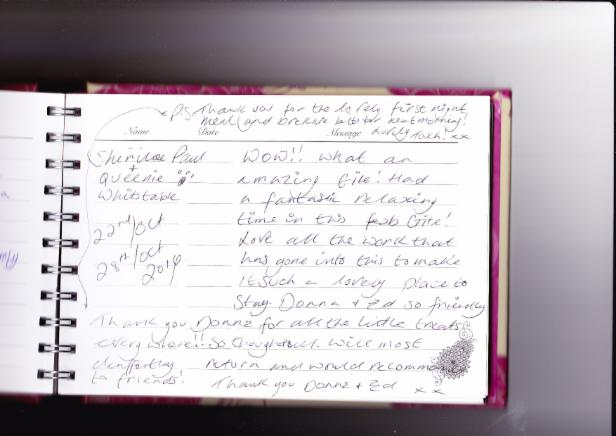 PS Thank you for the lovely first night
meal (and brekkie bits for next morning!
Lovely touch! xx
Name Date Message
Paul WOW!! what an
+
Queenie amazing Gite! Had
Whitstable a fantastic relaxing
22nd/Oct time in this fab Gite!
Love all the work that
28th/Oct has gone into this to make
it such a lovely place to
stay. Donna + Zed so friendly
Thank you Donna for all the little treats
everywhere!! So thoughtful. Will most
return and would recommend
to friends! Thank you Donna + Zed x x